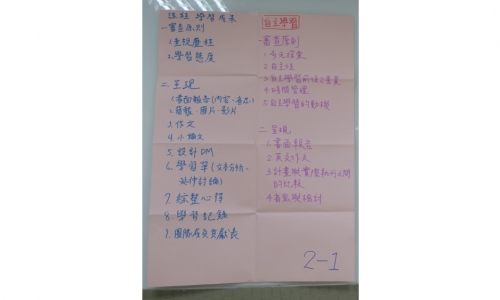 課程學習成果
一審查原則
1.重視歷程
2.學習態度
二、呈現
1.書面報告(內容、格式)
2.簡報、照片、影片
3.作文
4.小論文
5.設計DM
6.學習單(文本分析、
延伸討論)
7.統整心得
8.學習記錄
9.團隊成員貢獻表
自主學習
一審查原則
1.多元探索
2.自主性
4.時間管理
5.自主學習的動機
二.呈現
1.書面報告
2.英文作文
3.計畫與實際執行之間
的比較
2-1